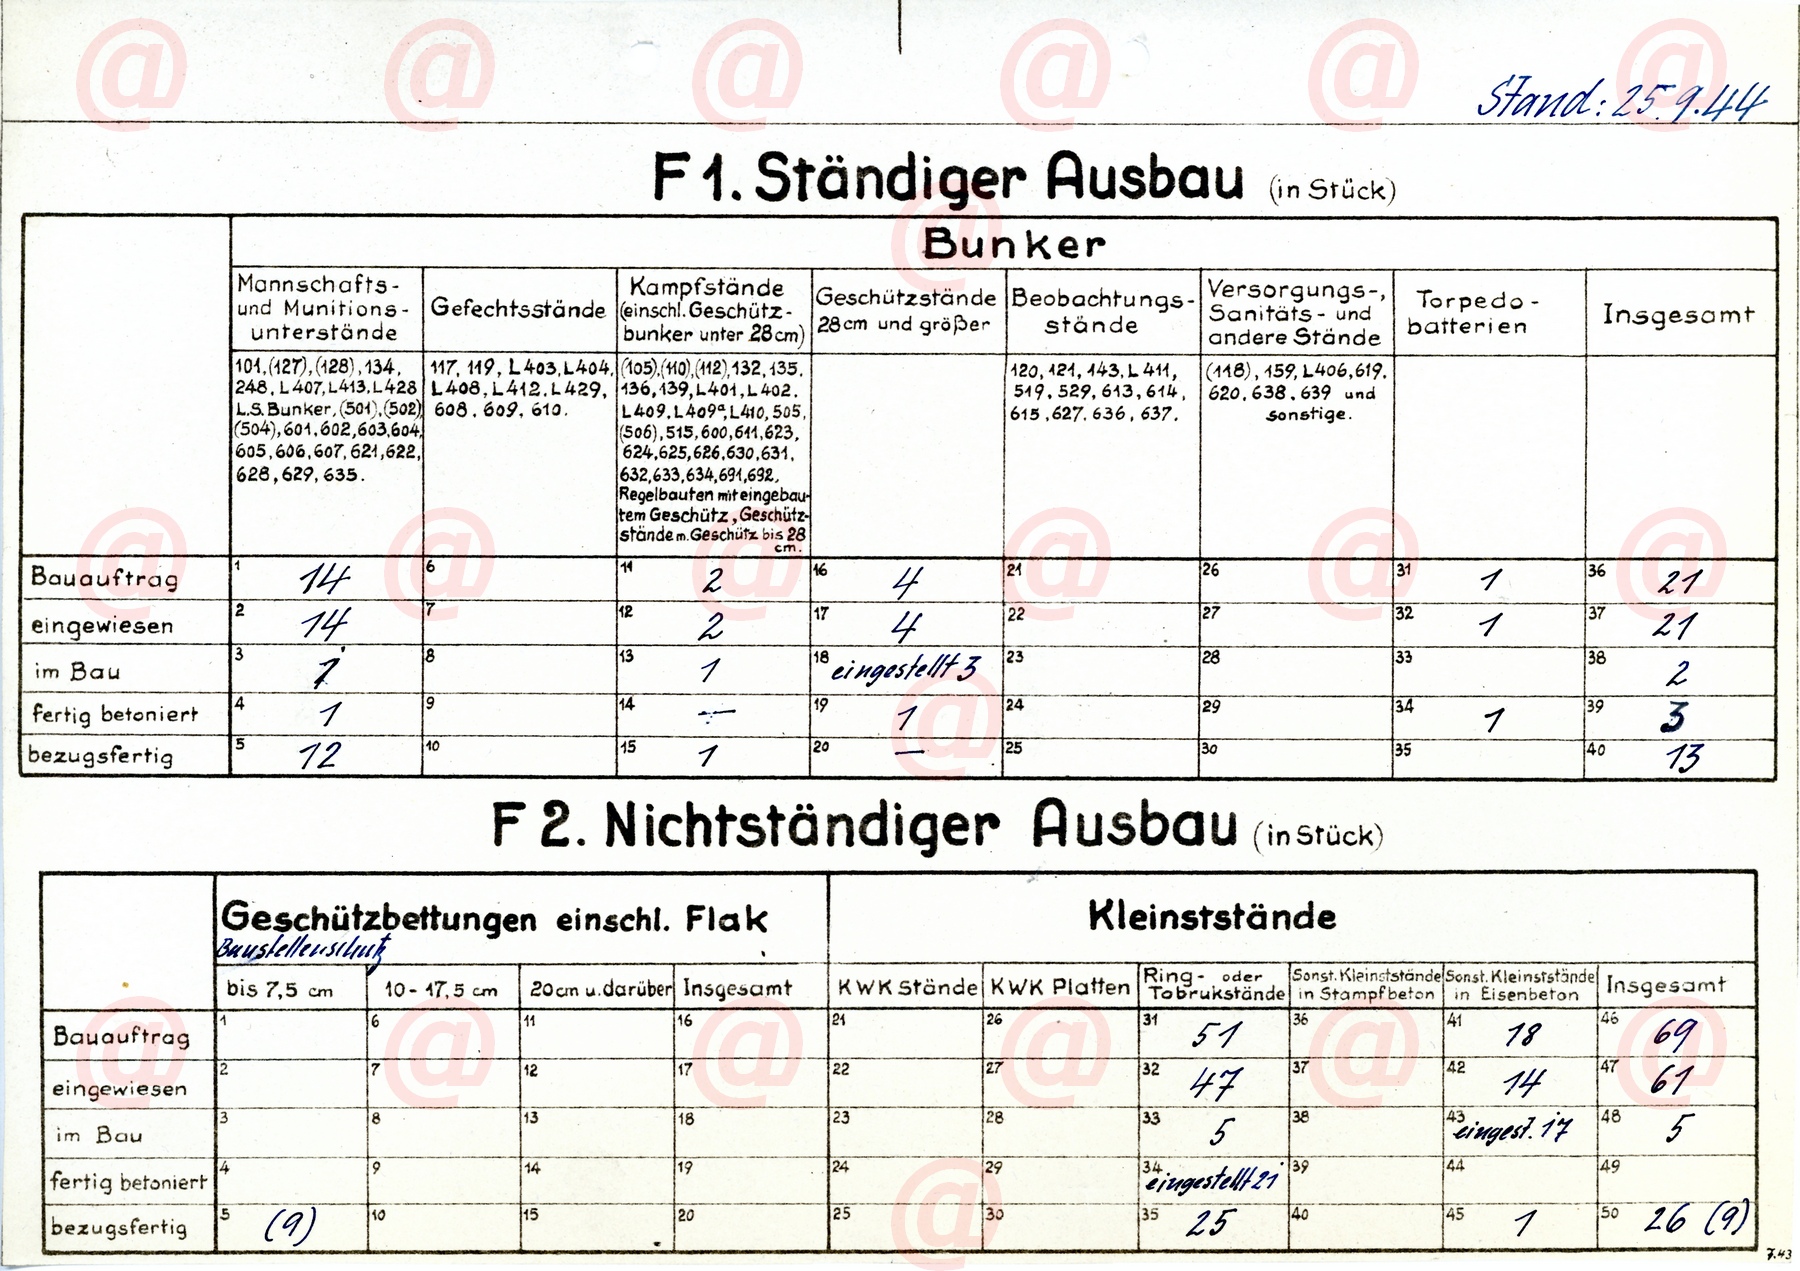 Stand: 25.9.44
F 1. Ständiger Ausbau (in Stück)
Bunker
Mannschafts-
und Munitions-
unterstände
Gefechtsstände
Kampfstände
(einschl. Geschütz-
bunker unter 28cm)
Geschützstände
28cm und größer
Beobachtungs-
stände
Versorgungs-,
Sanitäts- und
andere Stände
Torpedo-
batterien
Insgesamt
101, (127), (128), 134,
248, L407, L413, L428
L.S. Bunker, (501), (502)
(504), 601, 602, 603, 604,
605, 606, 607, 621, 622,
628, 629, 635.
117, 119, L403, L404,
L408, L412, L429,
608, 609, 610.
(105), (110), (112), 132, 135,
136, 139, L401, L402,
L409, L409a, L410, 505,
(506), 515, 600, 611, 623,
624, 625, 626, 630, 631,
632, 633, 634, 691, 692,
Regelbauten mit eingebau-
tem Geschütz, Geschütz-
stände m. Geschütz bis 28
cm.
120, 121, 143, L411,
519, 529, 613, 614,
615, 627, 636, 637.
(118), 159, L406, 619,
620, 638, 639 und
sonstige.
Bauauftrag 1 14 6 11 2 16 4 21 26 31 1 36 21
eingewiesen 2 14 7 12 2 17 4 22 27 32 1 37 21
im Bau 3 1 8 13 1 18 eingestellt 3 23 28 33 38 2
fertig betoniert 4 1 9 14 — 19 1 24 29 34 1 39 3
bezugsfertig 5 12 10 15 1 20 — 25 30 35 40 13
F 2. Nichtständiger Ausbau (in Stück)
Geschützbettungen einschl. Flak
Baustellenschutz
Kleinststände
bis 7,5 cm
10 - 17,5 cm
20cm u. darüber
Insgesamt
KWK Stände
KWK Platten
Ring- oder
Tobrukstände
Sonst. Kleinststände
in Stampfbeton
Sonst. Kleinststände
in Eisenbeton
Insgesamt
Bauauftrag 1 6 11 16 21 26 31 51 36 41 18 46 69
eingewiesen 2 7 12 17 22 27 32 47 37 42 14 47 61
im Bau 3 8 13 18 23 28 33 5 38 43 eingest. 17 48 5
fertig betoniert 4 9 14 19 24 29 34 eingestellt 21 39 44 49
bezugsfertig 5 (9) 10 15 20 25 30 35 25 40 45 1 50 26 (9)
7.43